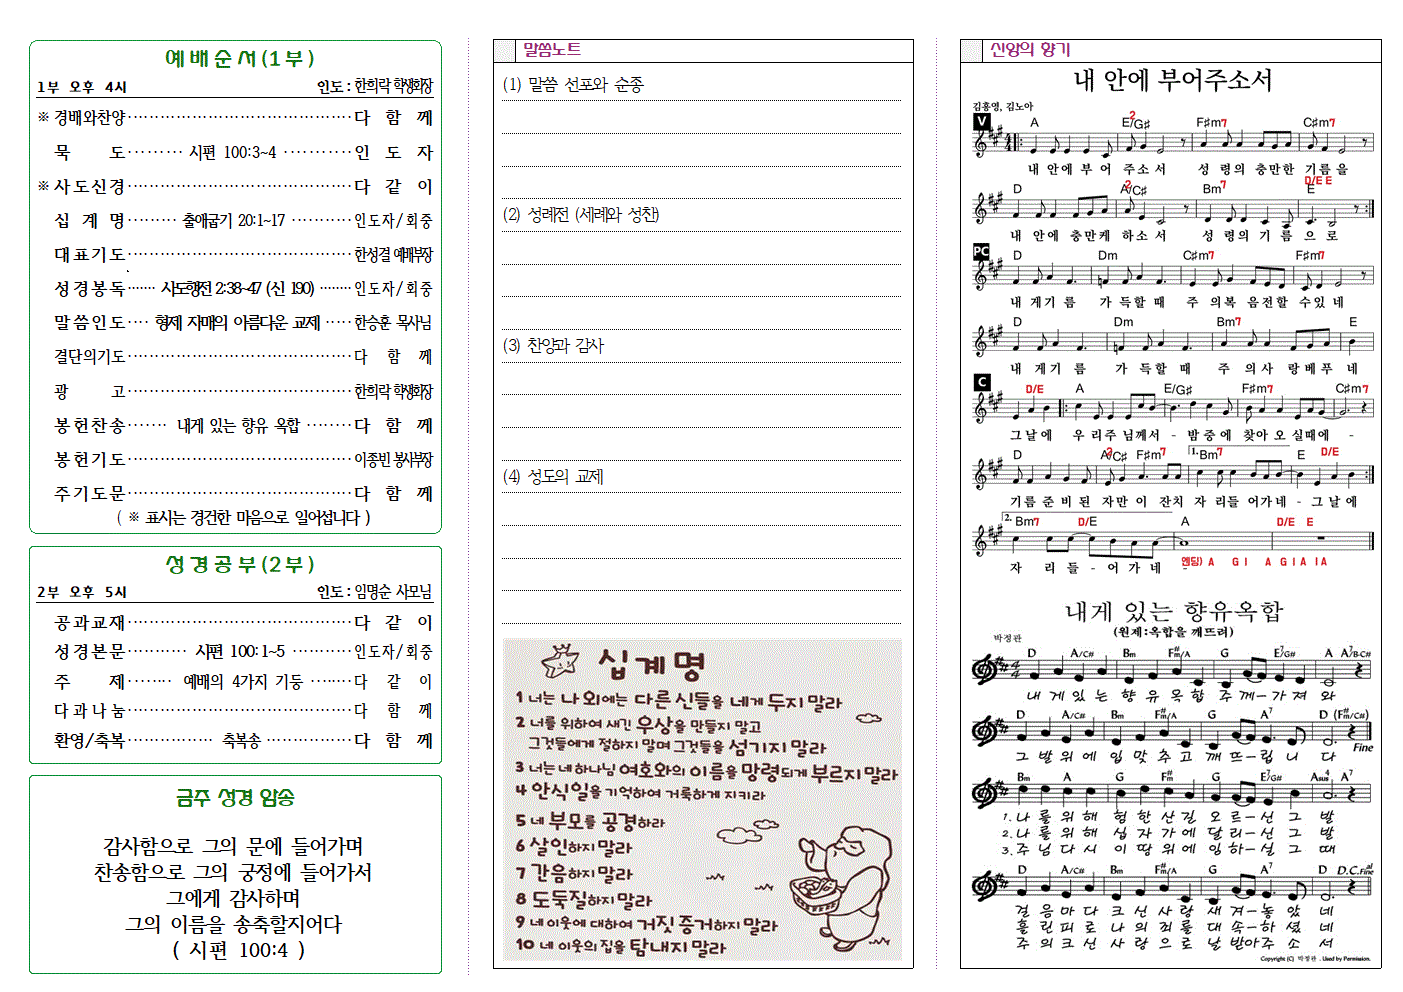 예배순서(1부)
1부 오후 4시 인도 : 한희락 학생회장
※ 경배와찬양 다 함 께
묵 도 시편 100:3~4 인 도 자
※ 사도신경 다 같 이
십 계 명 출애굽기 20:1~17 인도자/회중
대표기도 한성결 예배부장
성경봉독 사도행전 2:38~47 (신 190) 인도자/회중
말씀인도 형제 자매의 아름다운 교제 한승훈 목사님
결단의기도 다 함 께
광 고 한희락 학생회장
봉헌찬송 내게 있는 향유 옥합 다 함 께
봉헌기도 이종빈 봉사부장
주기도문 다 함 께
( ※ 표시는 경건한 마음으로 일어섭니다 )
성경공부(2부)
2부 오후 5시 인도 : 임명순 사모님
공과교재 다 같 이
성경본문 시편 100:1~5 인도자/회중
주 제 예배의 4가지 기둥 다 같 이
다과나눔 다 함 께
환영/축복 축복송 다 함 께
금주 성경 암송
감사함으로 그의 문에 들어가며
찬송함으로 그의 궁정에 들어가서
그에게 감사하며
그의 이름을 송축할지어다
( 시편 100:4 )
말씀노트
(1) 말씀 선포와 순종
(2) 성례전 (세례와 성찬)
(3) 찬양과 감사
(4) 성도의 교제
십계명
1 너는 나 외에는 다른 신들을 네게 두지 말라
2 너를 위하여 새긴 우상을 만들지 말고
그것들에게 절하지 말며 그것들을 섬기지 말라
3 너는 네 하나님 여호와의 이름을 망령되게 부르지 말라
4 안식일을 기억하여 거룩하게 지키라
5 네 부모를 공경하라
6 살인하지 말라
7 간음하지 말라
8 도둑질하지 말라
9 네 이웃에 대하여 거짓 증거하지 말라
10 네 이웃의 집을 탐내지 말라
신앙의 향기
내 안에 부어주소서
김흥영, 김노아
V A E/G♯ 2 F♯m7 C♯m7
내 안에 부 어 주소 서 성 령의 충만한 기름 을
D A/C♯ 2 Bm7 E D/E E
내 안에 충만케 하소 서 성 령의 기 름 으 로
PC D Dm C♯m7 F♯m7
내 게기 름 가 득할 때 주 의복 음전할 수있 네
D Dm Bm7 E
내 게기 름 가 득할 때 주 의사 랑베푸 네
C D/E A E/G♯ F♯m7 C♯m7
그날에 우 리주 님께서 - 밤중에 찾아 오 실때에 -
D A/C♯ 2 F♯m7 1. Bm7 E D/E
기름 준 비 된 자만 이 잔치 자 리들 어가네 - 그날 에
2. Bm7 D/E A D/E E
자 리 들 - 어 가 네 -
엔딩) A G I A G I A I A
내게 있는 향유옥합
(원제:옥합을 깨뜨려)
박정관
D A/C# Bm F#m/A G E7/G# A A7 B·C#
내 게 있 는 향 유 옥 합 주 께 - 가 져 와
D A/C# Bm F#m/A G A7 D (F#m/C#)
Fine
그 발 위 에 입 맞 추 고 깨 뜨 - 립 니 다
Bm A G F#m G E7/G# Asus4 A7
1. 나 를 위 해 험 한 산 길 오 르 - 신 그 발
2. 나 를 위 해 십 자 가 에 달 리 - 신 그 발
3. 주 님 다 시 이 땅 위 에 임 하 - 실 그 때
D A/C# Bm F#m/A G A7 D D.C. al Fine
걸 음 마 다 크 신 사 랑 새 겨 - 놓 았 네
흘 린 피 로 나 의 죄 를 대 속 - 하 셨 네
주 의 크 신 사 랑 으 로 날 받아주 소 서
Copyright (C) 박정관 . Used by Permission.